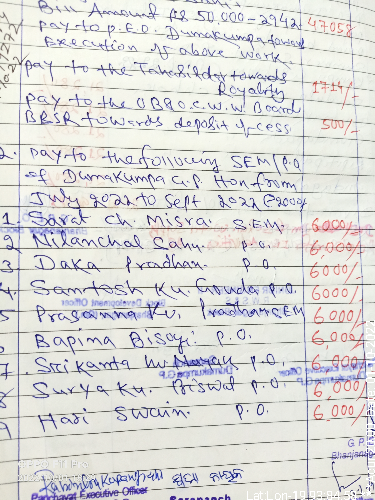 Bill Amount Rs 50,000-2942 47058
pay to P.E.O. Dumakumpa toward
Execution of above work
pay to the Tahasildar towards
Royality 1714/-
pay to the OB&O.C.W.W Board
BBSR towards deposit of cess 500/-
2. pay to the following SEM/P.O
of Dumakumpa G.P Hon from
July 2022 to Sept 2022 @2000/-
1. Sarat Ch. Misra. S.E.M 6000/-
2 Nilanchal Sahu. P.O. 6,000/-
3. Daka Pradhan. P.O. 6000/-
4. Santosh Ku. Gouda P.O. 6000/-
5 Prasanna Ku. Pradhan SEM 6,000/-
6 Bapina Bisoyi P.O. 6,000/-
7. Srikanta Ku. Nayak P.O. 6,000/-
8 Surya Ku. Biswal P.O. 6,000/-
9 Hadi Swain. P.O. 6,000/-
Panchayat Executive Officer
Sarapanch
G.P
Bhanjanagar